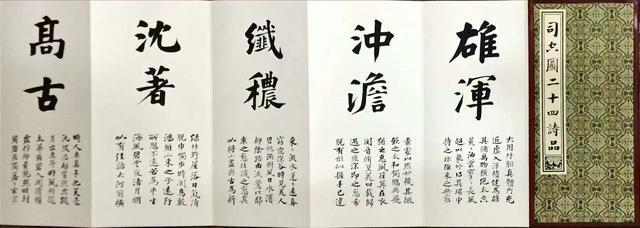 司空圖二十四詩品
雄渾
大用外腓真體內充
返虛入渾積健為雄
具備萬物橫絕太空
荒荒油雲寥寥長風
超以象外得其環中
持之非強來之無窮
沖澹
素處以默妙機其微
飲之太和獨鶴與飛
猶之惠風荏苒在衣
閱音修篁美曰載歸
遇之匪深即之愈希
脫有形似握手已違
纖穠
采采流水蓬蓬遠春
窈窕深谷時見美人
碧桃滿樹風日水濱
柳陰路曲流鶯比鄰
乘之愈往識之愈真
如將不盡與古為新
沈著
綠林野屋落日氣清
脫巾獨步時聞鳥聲
鴻雁不來之子遠行
所思不遠若為平生
海風碧雲夜渚月明
如有佳語大河前橫
高古
畸人乘真手把芙蓉
汎彼浩劫窅然空蹤
月出東斗好風相從
太華夜碧人聞清鐘
虛佇神素脫然畦封
黃唐在獨落落玄宗